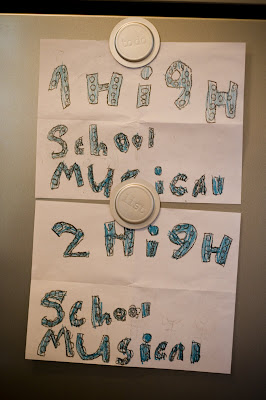 1 HigH
School
MUSical
2 HigH
School
MUSical